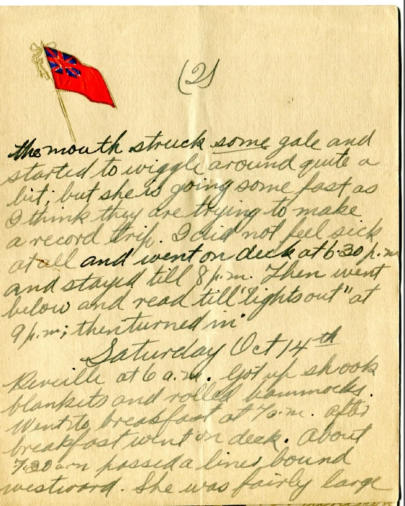 (2)
the mouth struck some gale and
started to wiggle around quite a
bit; but she is going some fast as
I think they are trying to make
a record trip. I did not feel sick
at all and went on deck at 6.30 p.m.
and stayed till 8 p.m. Then went
below and read till "lights out" at
9 p.m; then turned in.
Saturday Oct 14th
Reveille at 6 a.m. Got up shook
blankets and rolled hammocks.
Went to breakfast at 7 a.m. after
breakfast went on deck. About
7.30 am passed a liner bound
westward. She was fairly large